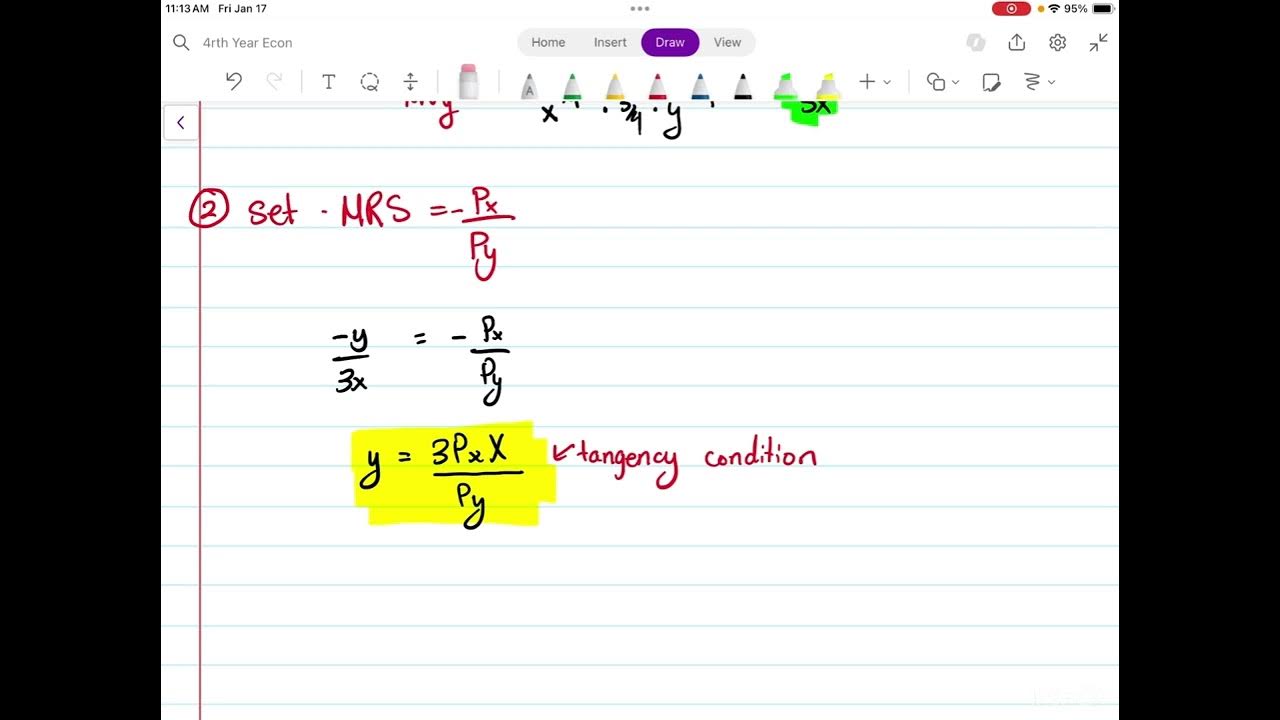 11:13 AM Fri Jan 17
95%
4rth Year Econ
Home Insert Draw View
T
A
x · 3/4 · y
3x
② set · MRS = - Px/Py
-y/3x = - Px/Py
y = 3PxX/Py ↙tangency condition